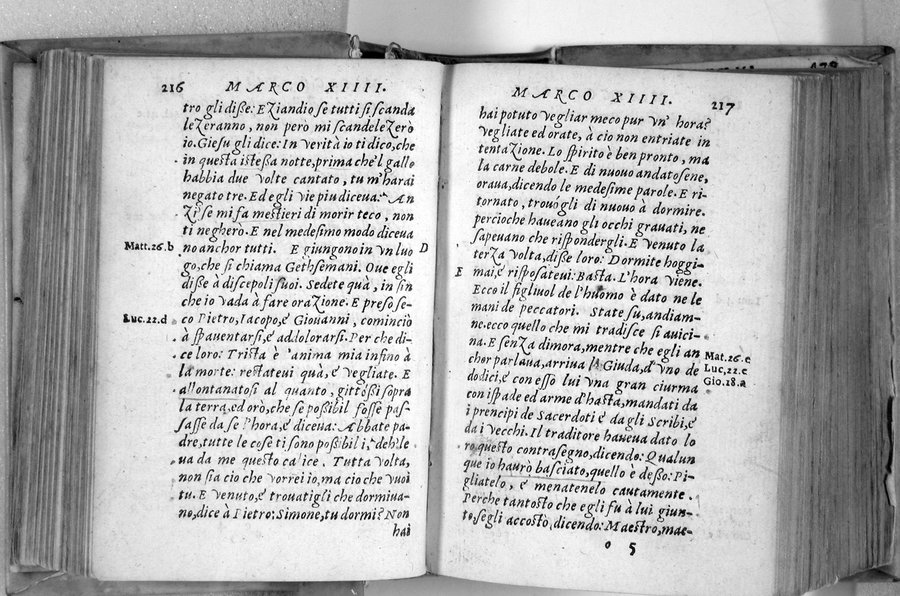 216 MARCO XIIII.
tro gli diße: EZiandio se tutti si scanda
leZeranno, non però mi scandeleZerò
io. Giesu gli dice: In verità io ti dico, che
in questa isteßa notte, prima che'l gallo
habbia due volte cantato, tu m'harai
negato tre. Ed egli vie piu diceua: An
Zi se mi fa mestieri di morir teco, non
ti negherò. E nel medesimo modo diceua
Matt.26.b no anchor tutti. E giungono in vn luo D
go, che si chiama Gethsemani. Oue egli
diße à discepoli suoi. Sedete quà, in sin
che io vada à fare oraZione. E preso se-
Luc.22.d co Pietro, Iacopo, e Giouanni, cominciò
à spauentarsi, e addolorarsi. Per che di-
ce loro: Trista è l'anima mia infino à
la morte: restateui quà, e vegliate. E
allontanatosi al quanto, gittoßi sopra
la terra, ed orò, che se poßibil foße pas-
saße da se l'hora, e diceua: Abbate pa-
dre, tutte le cose ti sono poßibili, deh le
ua da me questo calice. Tutta volta,
non sia ciò che vorrei io, ma cio che vuoi
tu. E venuto, e trouatigli che dormiua-
no, dice à Pietro: Simone, tu dormi? Non
hai
MARCO XIIII. 217
hai potuto vegliar meco pur vn' hora?
vegliate ed orate, à cio non entriate in
tentaZione. Lo spirito è ben pronto, ma
la carne debole. E di nuouo andatosene,
oraua, dicendo le medesime parole. E ri-
tornato, trouogli di nuouo à dormire.
percioche haueano gli occhi grauati, ne
sapeuano che rispondergli. E venuto la
terZa volta, diße loro: Dormite hoggi-
E mai, e risposateui. Basta. L'hora viene.
Ecco il figliuol de l'huomo è dato ne le
mani de peccatori. State su, andiam-
ne. ecco quello che mi tradisce si auici-
na. E senZa dimora, mentre che egli an Mat.26.e
chor parlaua, arriua Giuda, d'vno de Luc,22.e
dodici, e con eßo lui vna gran ciurma Gio.18.a
con ispade ed arme d'hasta, mandati da
i prencipi de Sacerdoti e da gli Scribi, e
da i vecchi. Il traditore haueua dato lo
ro questo contrasegno, dicendo: Qualun
que io haurò basciato, quello è deßo: Pi-
gliatelo, e menatenelo cautamente.
Perche tantosto che egli fù à lui giun-
to, segli accostò, dicendo: Maestro, mae-
o 5